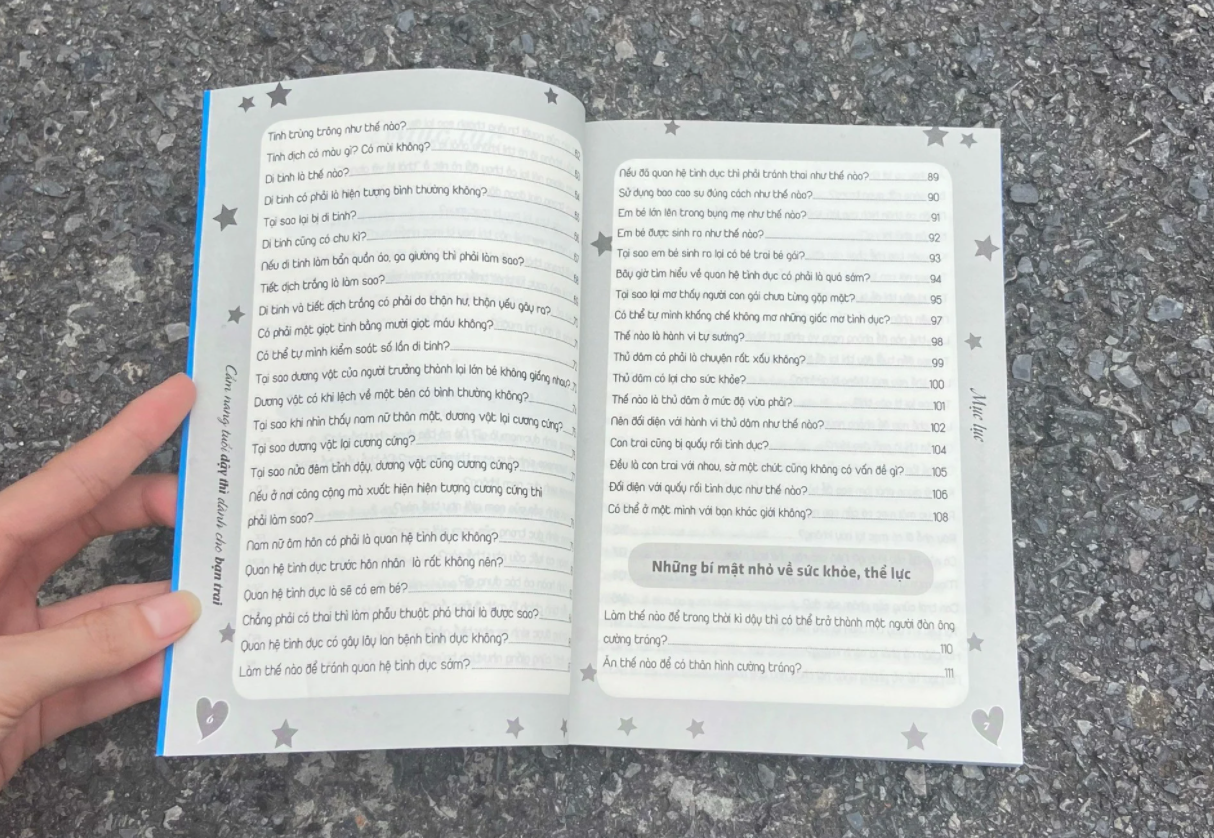 Tinh trùng trông như thế nào?
Tinh dịch có màu gì? Có mùi không? 62
Di tinh là thế nào? 63
Di tinh có phải là hiện tượng bình thường không?
Tại sao lại bị di tinh?
Di tinh cũng có chu kì?
Nếu di tinh làm bẩn quần áo, ga giường thì phải làm sao?
Tiết dịch trắng là làm sao?
Di tinh và tiết dịch trắng có phải do thận hư, thận yếu gây ra?
Có phải một giọt tinh bằng mười giọt máu không?
Có thể tự mình kiểm soát số lần di tinh?
Tại sao dương vật của người trưởng thành lại lớn bé không giống nhau?
Dương vật có khi lệch về một bên có bình thường không?
Tại sao khi nhìn thấy nam nữ thân mật, dương vật lại cương cứng?
Tại sao dương vật lại cương cứng?
Tại sao nửa đêm tỉnh dậy, dương vật cũng cương cứng?
Nếu ở nơi công cộng mà xuất hiện hiện tượng cương cứng thì
phải làm sao?
Nam nữ ôm hôn có phải là quan hệ tình dục không?
Quan hệ tình dục trước hôn nhân là rất không nên?
Quan hệ tình dục là sẽ có em bé?
Chẳng phải có thai thì làm phẫu thuật phá thai là được sao?
Quan hệ tình dục có gây lây lan bệnh tình dục không?
Làm thế nào để tránh quan hệ tình dục sớm?
Cẩm nang tuổi dậy thì dành cho bạn trai
6
Nếu đã quan hệ tình dục thì phải tránh thai như thế nào? 89
Sử dụng bao cao su đúng cách như thế nào? 90
Em bé lớn lên trong bụng mẹ như thế nào? 91
Em bé được sinh ra như thế nào? 92
Tại sao em bé sinh ra lại có bé trai bé gái? 93
Bây giờ tìm hiểu về quan hệ tình dục có phải là quá sớm? 94
Tại sao lại mơ thấy người con gái chưa từng gặp mặt? 95
Có thể tự mình khống chế không mơ những giấc mơ tình dục? 97
Thế nào là hành vi tự sướng? 98
Thủ dâm có phải là chuyện rất xấu không? 99
Thủ dâm có lợi cho sức khỏe? 100
Thế nào là thủ dâm ở mức độ vừa phải? 101
Nên đối diện với hành vi thủ dâm như thế nào? 102
Con trai cũng bị quấy rối tình dục? 104
Đều là con trai với nhau, sờ một chút cũng không có vấn đề gì? 105
Đối diện với quấy rối tình dục như thế nào? 106
Có thể ở một mình với bạn khác giới không? 108
Những bí mật nhỏ về sức khỏe, thể lực
Làm thế nào để trong thời kì dậy thì có thể trở thành một người đàn ông
cường tráng? 110
Ăn thế nào để có thân hình cường tráng? 111
Mục lục
7